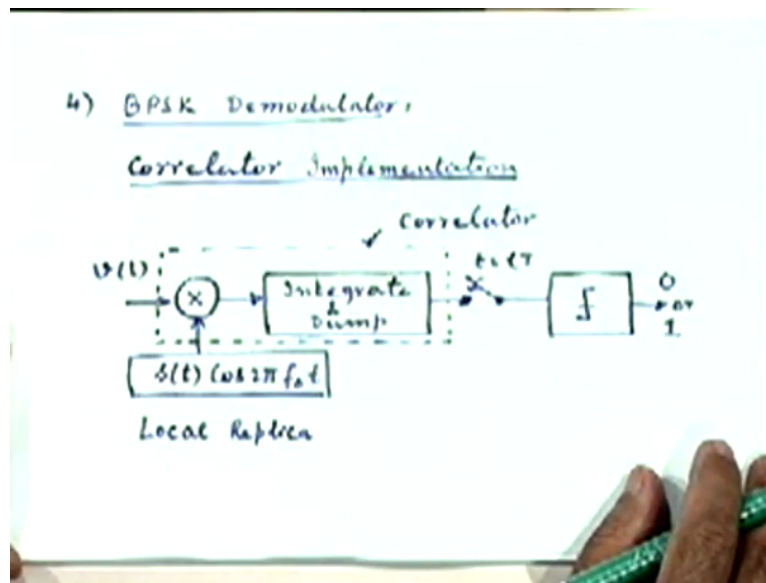 4) BPSK Demodulator,
Correlator Implementation
Correlator
v(t)
X
Integrate
&
Dump
0
or
1
s(t) Cos 2π f₀ t
Local Replica